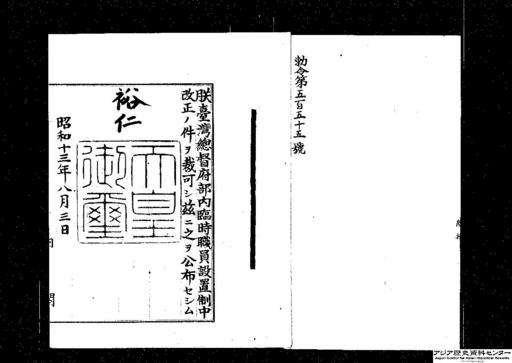 勅令第五百五十五號
朕臺灣總督府部內臨時職員設置制中
改正ノ件ヲ裁可シ茲ニ之ヲ公布セシム
裕仁
天皇
御璽
昭和十三年八月三日
アジア歴史資料センター
Japan Center for Asian Historical Records